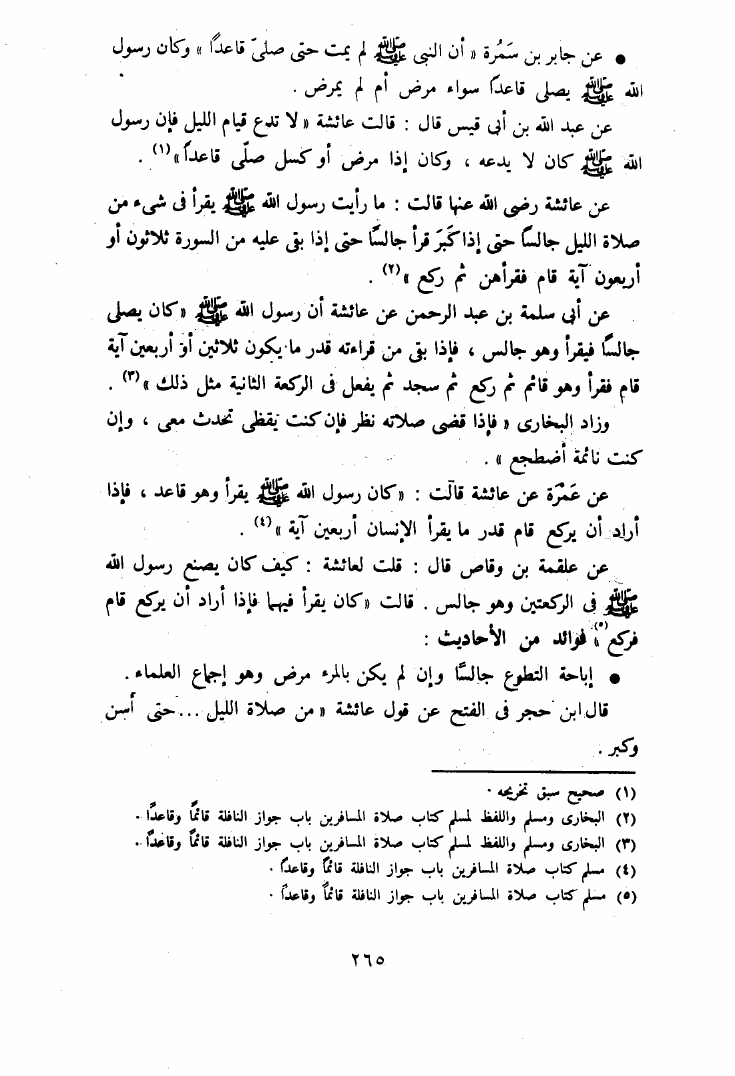 ● عن جابر بن سَمُرة « أن النبى ﷺ لم يمت حتى صلىّ قاعدًا » وكان رسول
الله ﷺ يصلى قاعدًا سواء مرض أم لم يمرض .
عن عبد الله بن أبى قيس قال : قالت عائشة « لا تدع قيام الليل فإن رسول
الله ﷺ كان لا يدعه ، وكان إذا مرض أو كسل صلّى قاعداً »(١) .
عن عائشة رضى الله عنها قالت : ما رأيت رسول الله ﷺ يقرأ فى شىء من
صلاة الليل جالسًا حتى إذا كَبَرَ قرأ جالسًا حتى إذا بقى عليه من السورة ثلاثون أو
أربعون آية قام فقرأهن ثم ركع »(٢) .
عن أبى سلمة بن عبد الرحمن عن عائشة أن رسول الله ﷺ « كان يصلى
جالسًا فيقرأ وهو جالس ، فإذا بقى من قراءته قدر ما يكون ثلاثين أو أربعين آية
قام فقرأ وهو قائم ثم ركع ثم سجد ثم يفعل فى الركعة الثانية مثل ذلك »(٣) .
وزاد البخارى « فإذا قضى صلاته نظر فإن كنت يقظى تحدث معى ، وإن
كنت نائمة أضطجع » .
عن عَمْرَة عن عائشة قالت : « كان رسول الله ﷺ يقرأ وهو قاعد ، فإذا
أراد أن يركع قام قدر ما يقرأ الإنسان أربعين آية »(٤) .
عن علقمة بن وقاص قال : قلت لعائشة : كيف كان يصنع رسول الله
ﷺ فى الركعتين وهو جالس . قالت « كان يقرأ فيهما فإذا أراد أن يركع قام
فركع »(٥) فوائد من الأحاديث :
● إباحة التطوع جالسًا وإن لم يكن بالمرء مرض وهو إجماع العلماء .
قال ابن حجر فى الفتح عن قول عائشة « من صلاة الليل ... حتى أسن
وكبر .
(١) صحيح سبق تخريجه .
(٢) البخارى ومسلم واللفظ لمسلم كتاب صلاة المسافرين باب جواز النافلة قائمًا وقاعدًا .
(٣) البخارى ومسلم واللفظ لمسلم كتاب صلاة المسافرين باب جواز النافلة قائمًا وقاعدًا .
(٤) مسلم كتاب صلاة المسافرين باب جواز النافلة قائمًا وقاعدًا .
(٥) مسلم كتاب صلاة المسافرين باب جواز النافلة قائماً وقاعداً .
٢٦٥